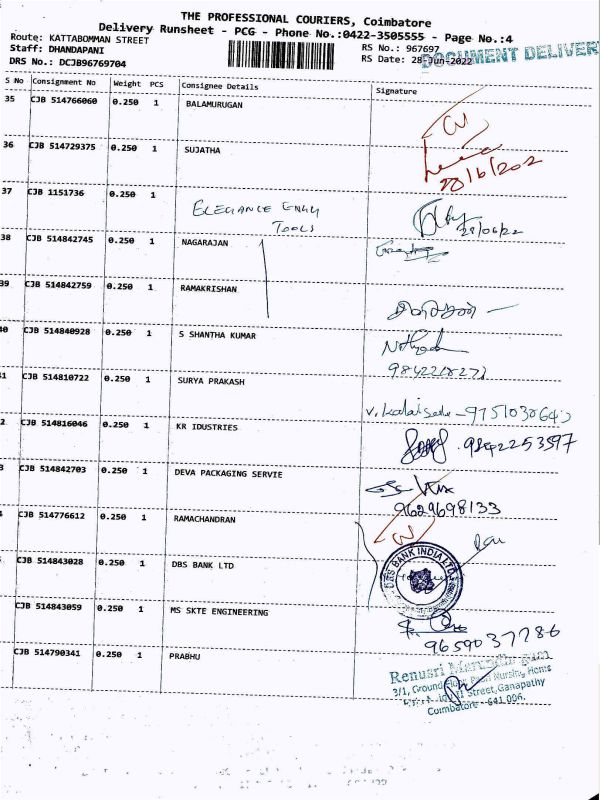 THE PROFESSIONAL COURIERS, Coimbatore
Delivery Runsheet - PCG - Phone No.:0422-3505555 - Page No.:4
Route: KATTABOMMAN STREET
Staff: DHANDAPANI
DRS No.: DCJB96769704
RS No.: 967697
RS Date: 28-Jun-2022
DOCUMENT DELIVER
S No Consignment No Weight PCS Consignee Details Signature
35 CJB 514766060 0.250 1 BALAMURUGAN
36 CJB 514729375 0.250 1 SUJATHA
28/6/202
37 CJB 1151736 0.250 1 ELEGANCE ENGG
TOOLS
28/06/22
38 CJB 514842745 0.250 1 NAGARAJAN
39 CJB 514842759 0.250 1 RAMAKRISHAN
40 CJB 514840928 0.250 1 S SHANTHA KUMAR
1 CJB 514810722 0.250 1 SURYA PRAKASH
2 CJB 514816046 0.250 1 KR IDUSTRIES
9842253597
3 CJB 514842703 0.250 1 DEVA PACKAGING SERVIE
9629698133
CJB 514776612 0.250 1 RAMACHANDRAN
CJB 514843028 0.250 1 DBS BANK LTD
DBS BANK INDIA LTD
CJB 514843059 0.250 1 MS SKTE ENGINEERING
9659037786
CJB 514790341 0.250 1 PRABHU
Renusri
3/1, Ground Floor, Nursing Home
Street, Ganapathy
Coimbatore - 641 006.